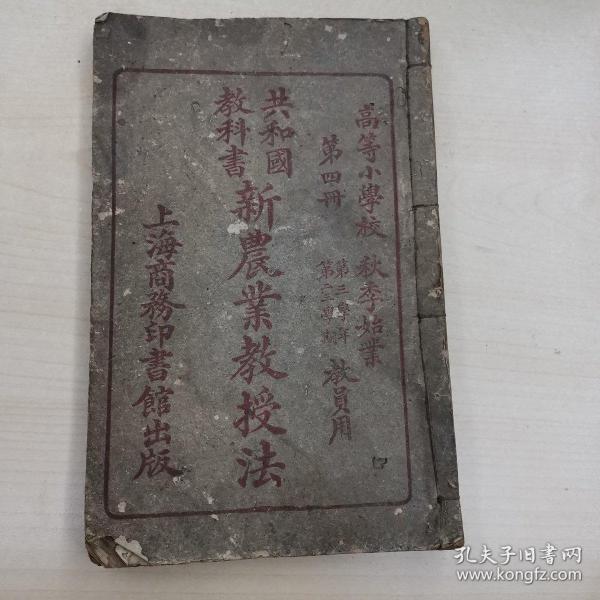 高等小學校 秋季始業
第四冊
第三學年
第二三學期
教員用
共和國
教科書
新農業教授法
上海商務印書館出版
孔夫子旧书网
www.kongfz.com